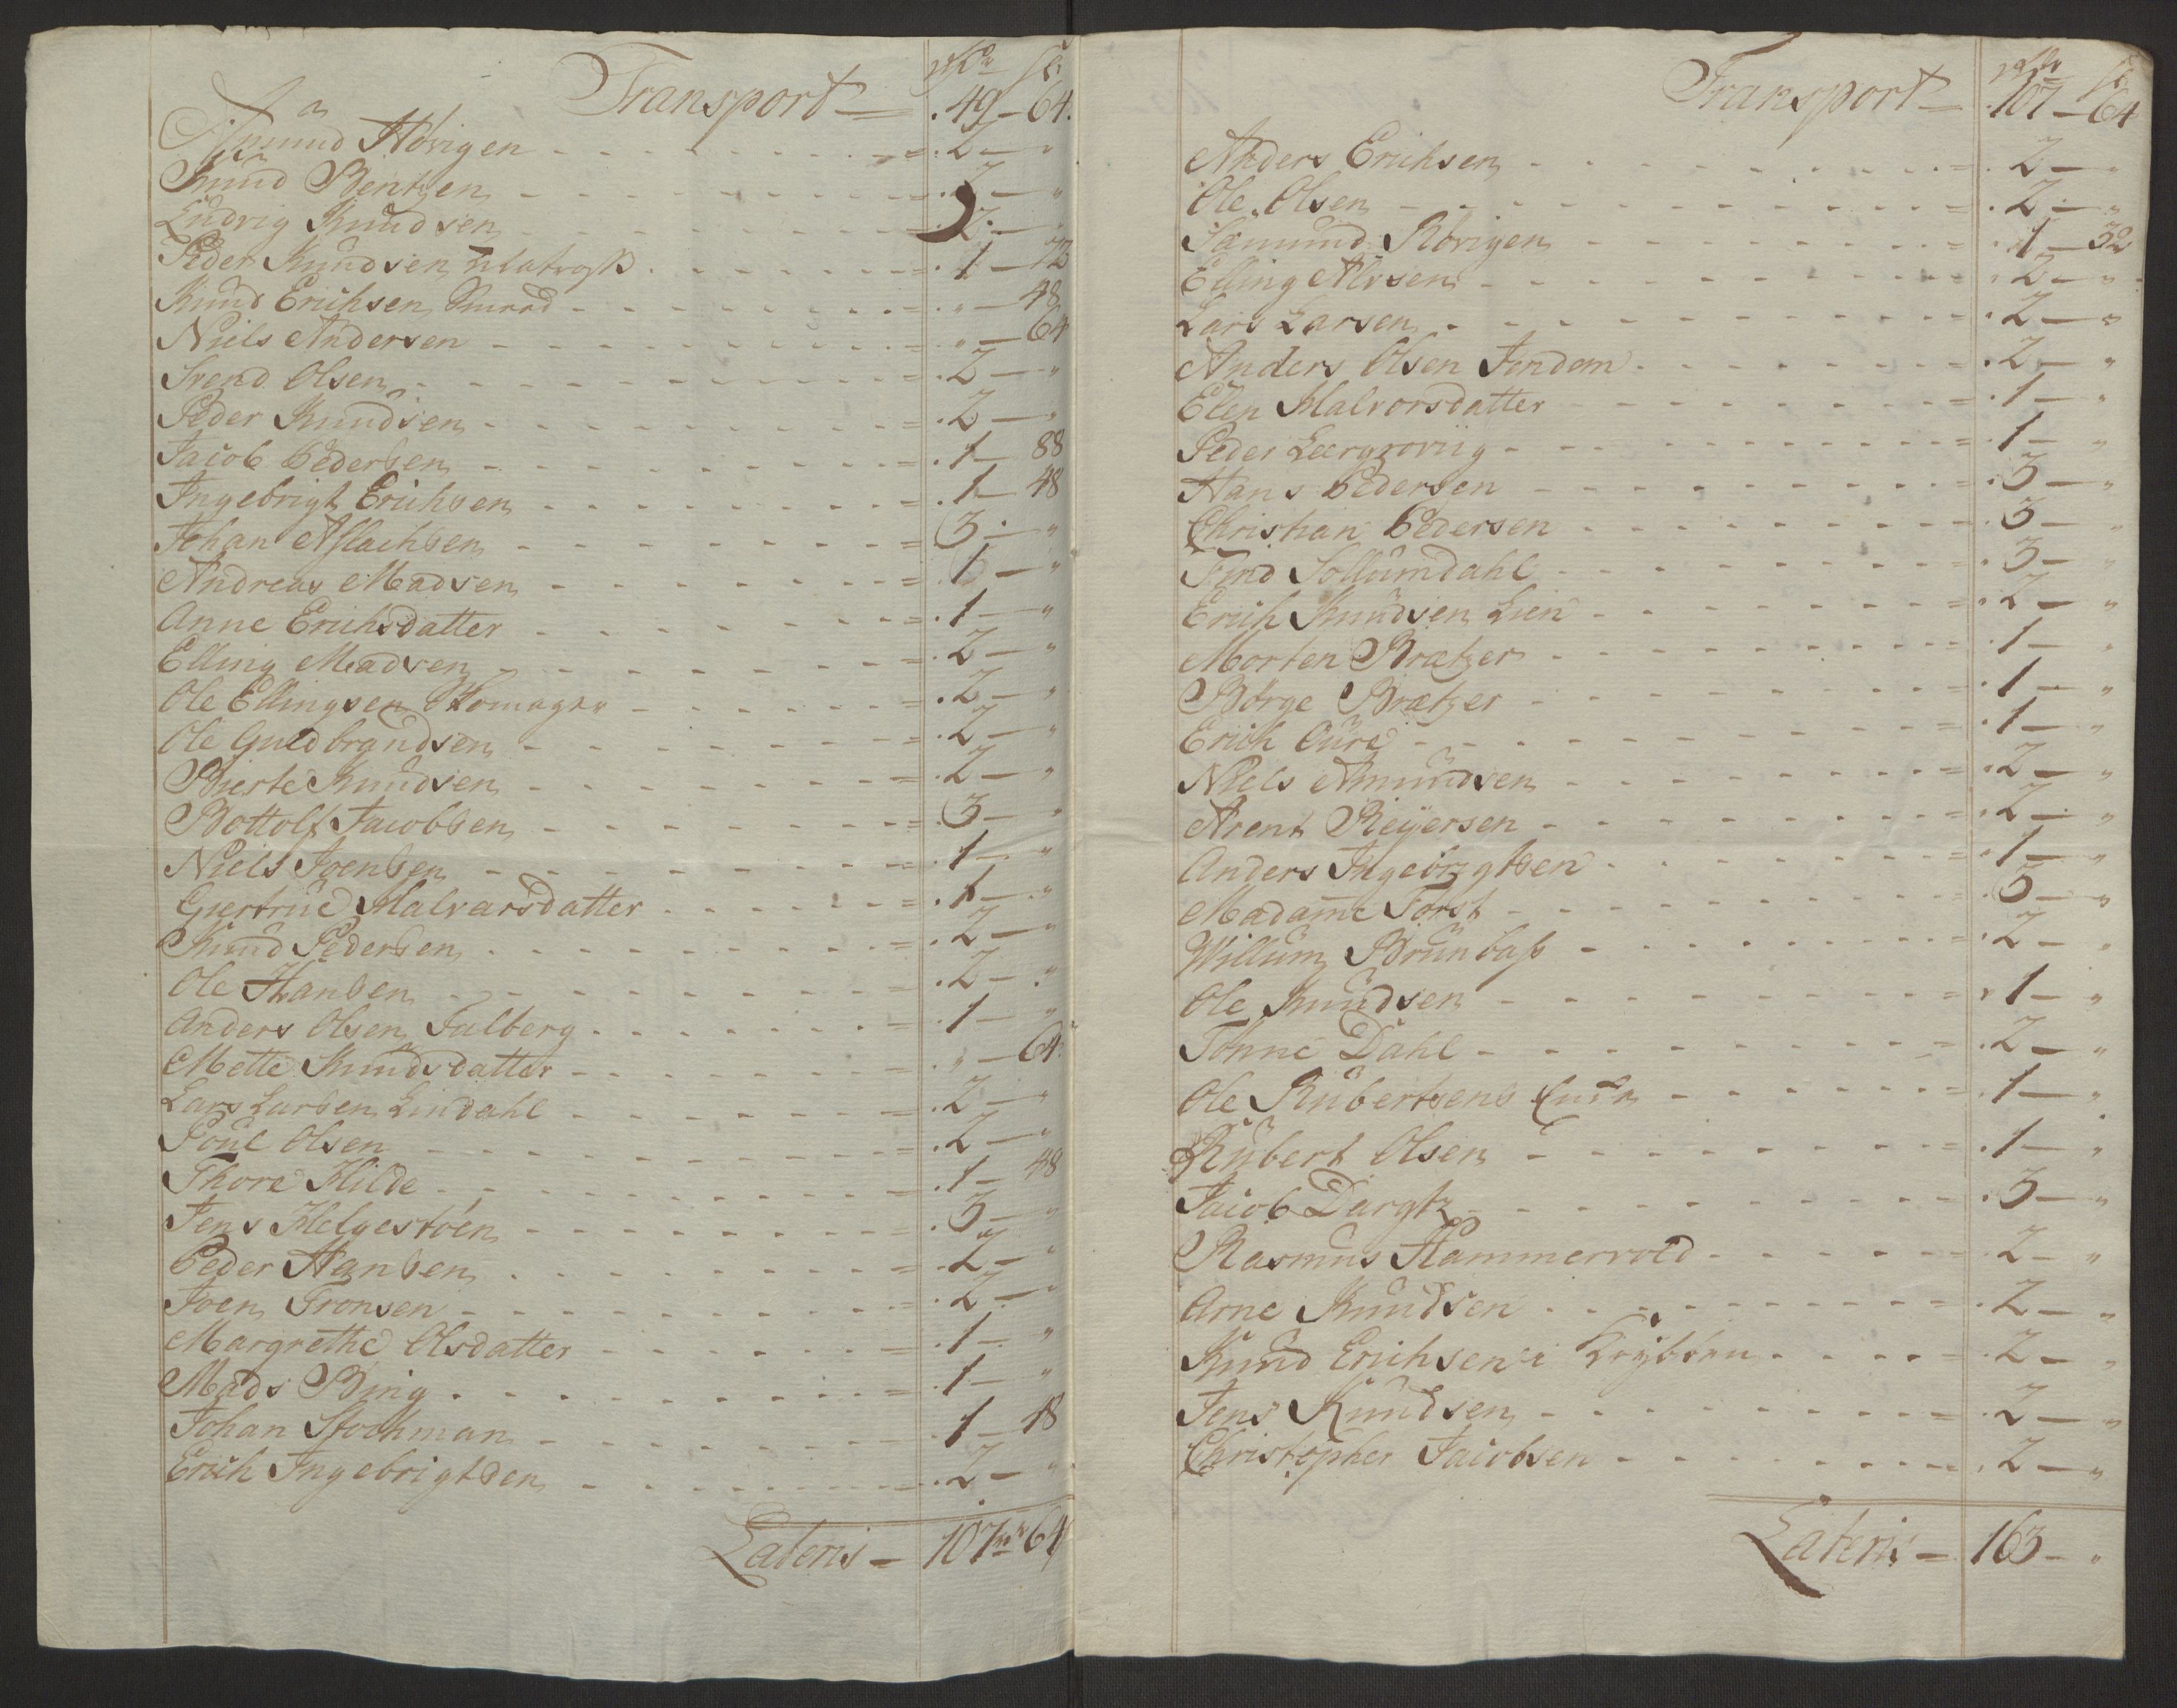 Transport 49 - 64.
Amund Hövigen 2 - "
Knud Bentzen 2 - "
Ludvig Knudsen 2 - "
Peder Knudsen Matros 1 - 72
Knud Erichsen Smed " - 48
Niels Andersen " - 64
Svend Olsen 2 - "
Peder Knudsen 2 - "
Jacob Pedersen 1 - 88
Ingebrigt Erichsen 1 - 48
Johan Aslachsen 3 - "
Andreas Madsen 1 - "
Anne Erichsdatter 1 - "
Elling Madsen 2 - "
Ole Ellingsen Skomager 2 - "
Ole Guldbrandsen 2 - "
Bierte Knudsen 2 - "
Bottolf Jacobsen 3 - "
Niels Joensen 1 - "
Giertrud Halvarsdatter 1 - "
Knud Pedersen 2 - "
Ole Hansen 2 - "
Anders Olsen Falberg 1 - "
Mette Knudsdatter " - 64
Lars Larsen Lindahl 2 - "
Poul Olsen 2 - "
Thore Hilde 1 - 48
Jens Helgestöen 3 - "
Peder Hansen 2 - "
Joen Tronsen 2 - "
Margrethe Olsdatter 1 - "
Mads Bing 1 - "
Johan Stockman 1 - 48
Erich Ingebrigtsen 2 - "
Lateris - 107 64
Transport 107 - 64
Anders Erichsen 2 - "
Ole Olsen 2 - "
Samund Rövigen 1 - 32
Elling Alvsen 2 - "
Lars Larsen 2 - "
Anders Olsen Jendem 2 - "
Elen Halvorsdatter 1 - "
Peder Leergroviig 1 - "
Hans Pedersen 3 - "
Christian Pedersen 3 - "
Find Solloumdahl 3 - "
Erich Knudsen Lien 2 - "
Morten Brætzer 1 - "
Börge Brætzer 1 - "
Erich Oure 1 - "
Niels Amundsen 2 - "
Arent Reyersen 2 - "
Anders Ingebrigtsen 1 - "
Madame Forst 3 - "
Willum Brunbass 2 - "
Ole Knudsen 1 - "
Tönne Dahl 2 - "
Ole Rubertsens 1 - "
Rubert Olsen 1 - "
Jacob Dargtz 3 - "
Rasmus Hammervold 2 - "
Arne Knudsen 2 - "
Knud Erichsen i 2 - "
Jens Knudsen 2 - "
Christopher Jacobsen 2 - "
Lateris - 163 - "